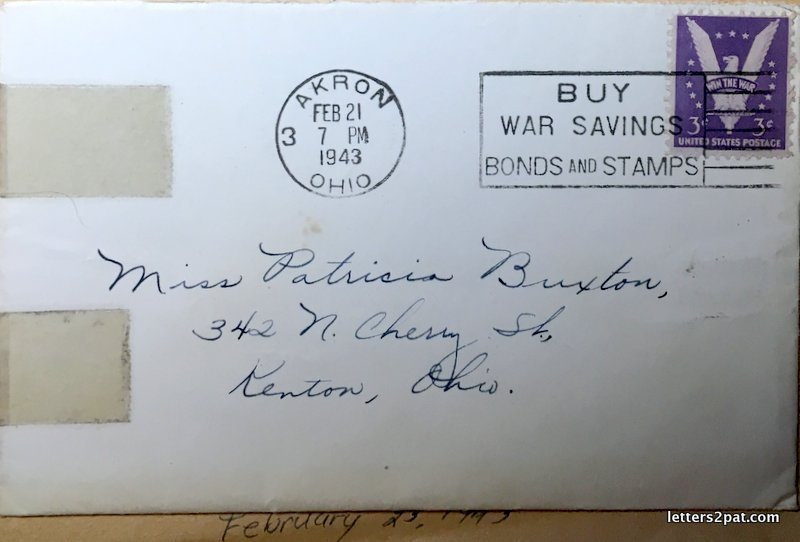 AKRON
FEB 21
3 7 PM
1943
OHIO
BUY
WAR SAVINGS
BONDS AND STAMPS
WIN THE WAR
3¢ 3¢
UNITED STATES POSTAGE
Miss Patricia Buxton,
342 N. Cherry St,
Kenton, Ohio.
February 23, 1943
letters2pat.com